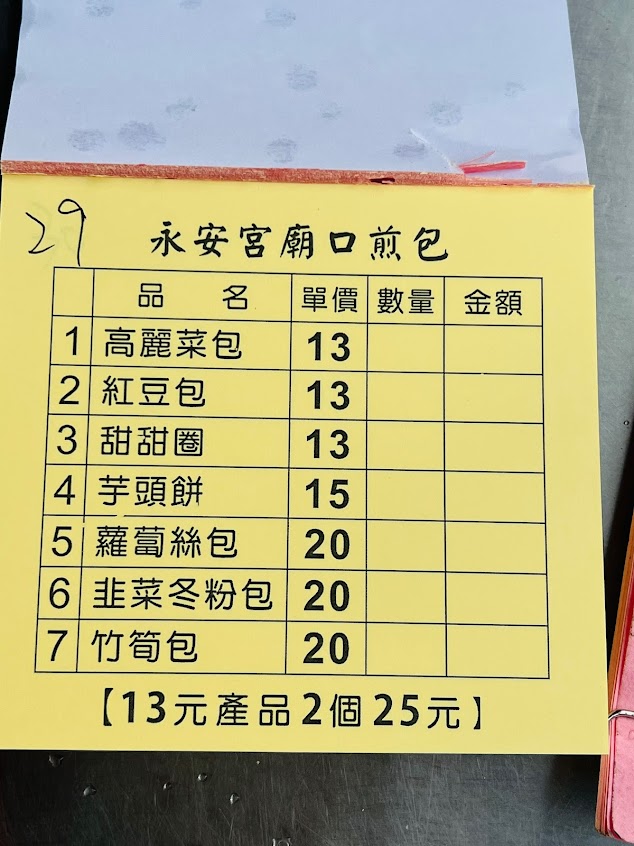 29
永安宮廟口煎包
品名 單價 數量 金額
1 高麗菜包 13
2 紅豆包 13
3 甜甜圈 13
4 芋頭餅 15
5 蘿蔔絲包 20
6 韭菜冬粉包 20
7 竹筍包 20
【13元產品2個25元】